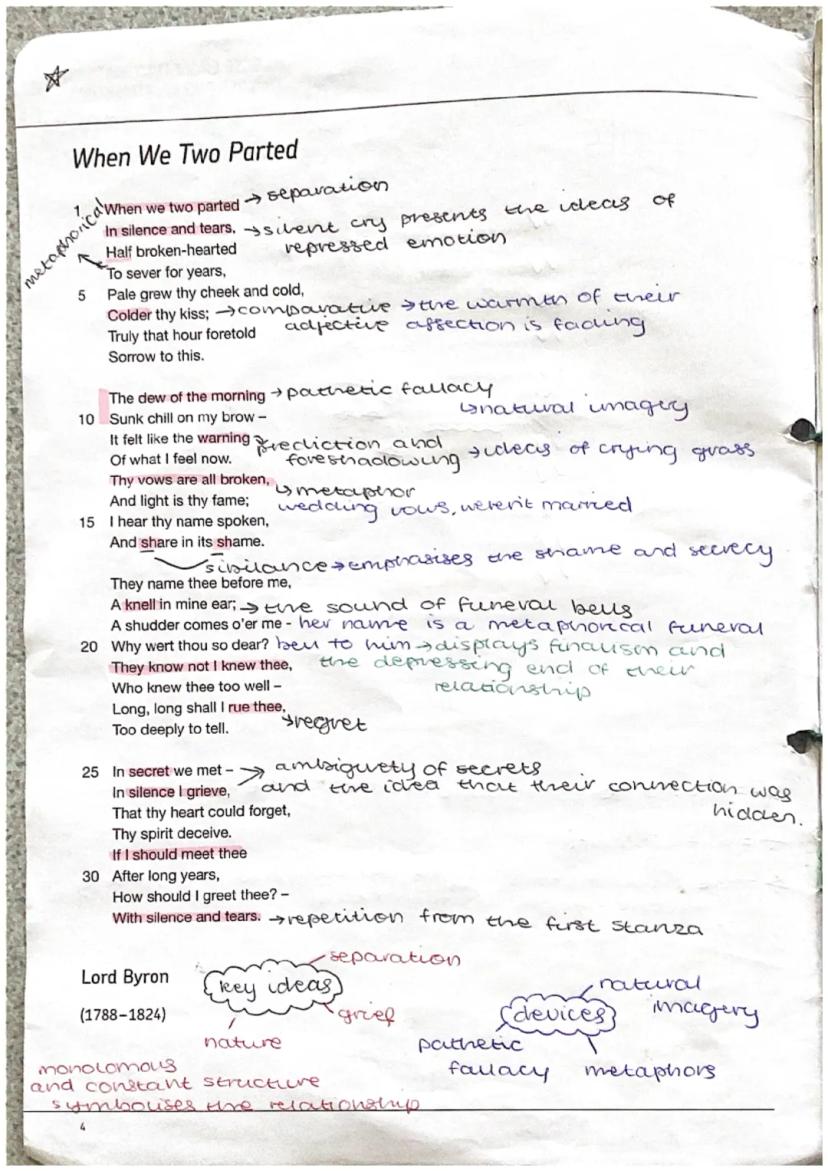 When We Two Parted
1 When we two parted → separation
metaphorical
In silence and tears. → silent cry presents the ideas of
Half broken-hearted repressed emotion
To sever for years,
5 Pale grew thy cheek and cold,
Colder thy kiss; → comparative → the warmth of their
adjective affection is fading
Truly that hour foretold
Sorrow to this.
The dew of the morning → pathetic fallacy
↳ natural imagery
10 Sunk chill on my brow –
It felt like the warning → prediction and
foreshadowing → ideas of crying grass
Of what I feel now.
Thy vows are all broken,
↳ metaphor
And light is thy fame; wedding vows, weren't married
15 I hear thy name spoken,
And share in its shame.
sibilance → emphasises the shame and secrecy
They name thee before me,
A knell in mine ear; → the sound of funeral bells
A shudder comes o'er me - her name is a metaphorical funeral
20 Why wert thou so dear? bell to him → displays finalism and
They know not I knew thee, the depressing end of their
Who knew thee too well – relationship
Long, long shall I rue thee,
↳ regret
Too deeply to tell.
25 In secret we met – → ambiguety of secrets
In silence I grieve, and the idea that their connection was
hidden.
That thy heart could forget,
Thy spirit deceive.
If I should meet thee
30 After long years,
How should I greet thee? –
With silence and tears. → repetition from the first stanza
Lord Byron
(1788–1824)
key ideas
separation
grief
nature
devices
natural
imagery
pathetic
fallacy
metaphors
monotomous
and constant structure
symbolises the relationship
4